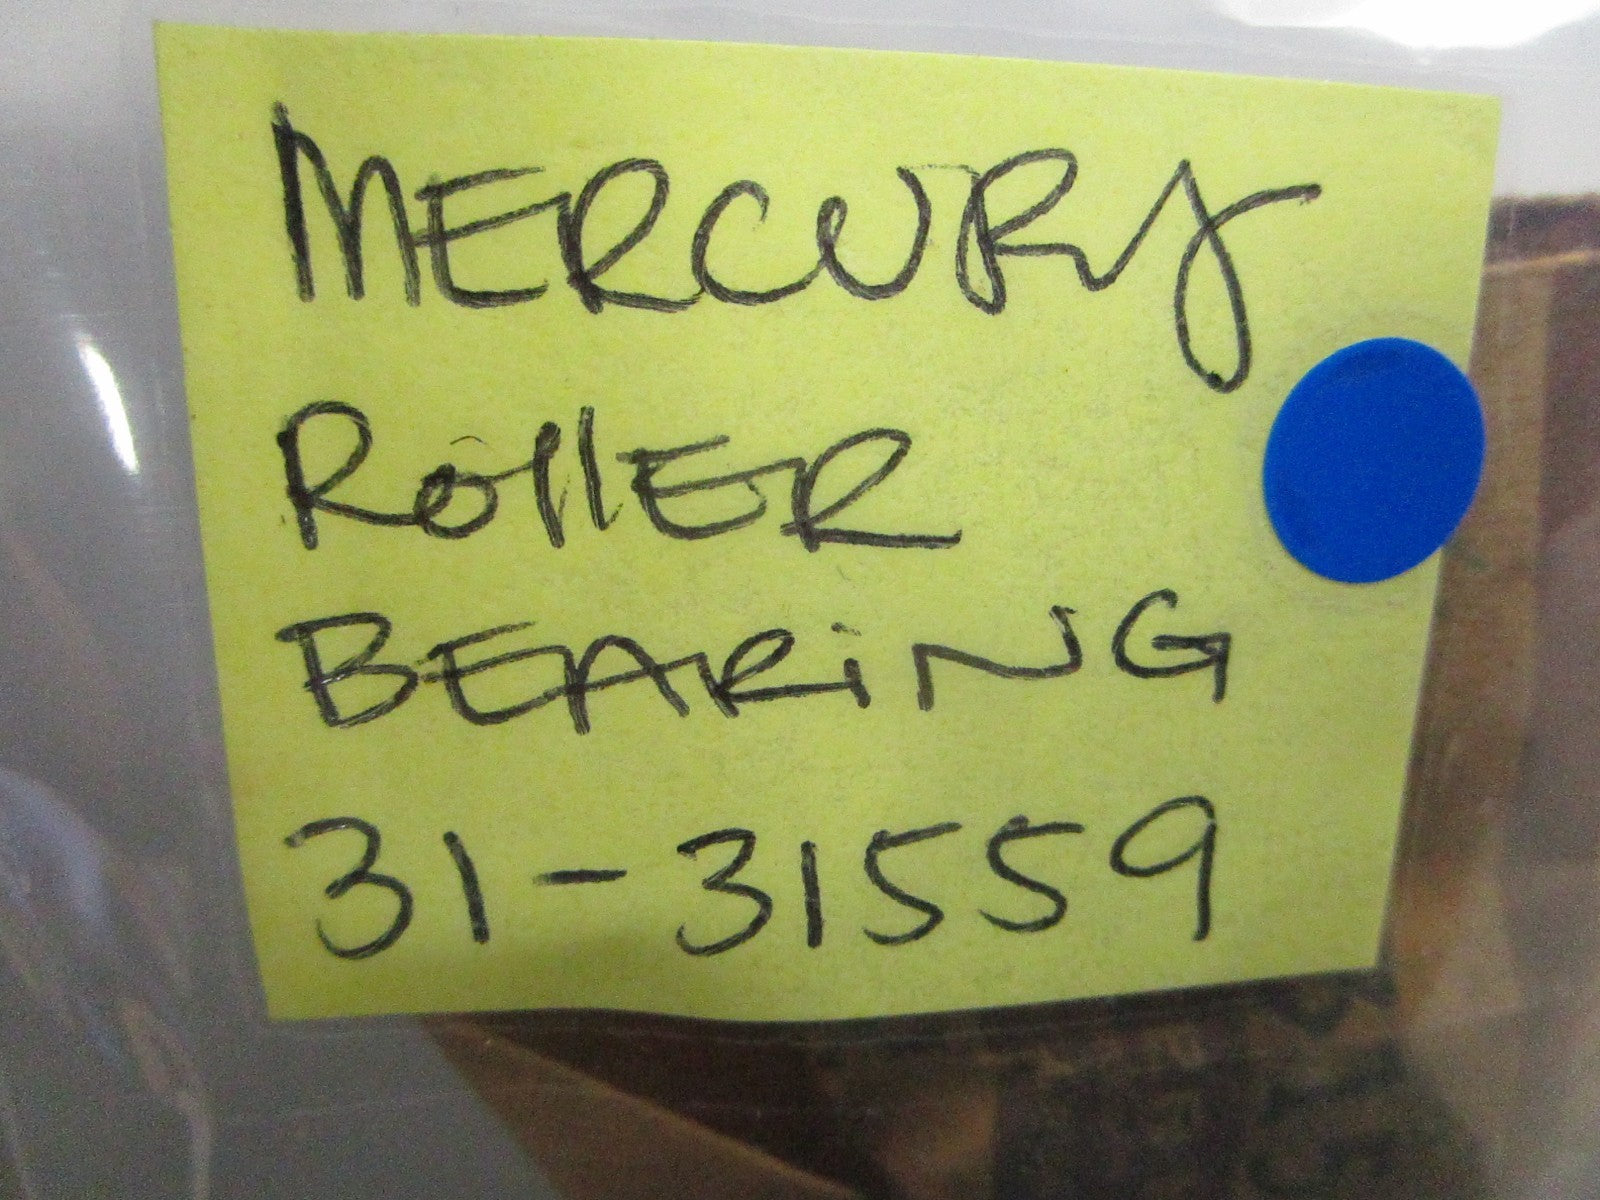 MERCURY
ROllER
BEARiNG
31-31559